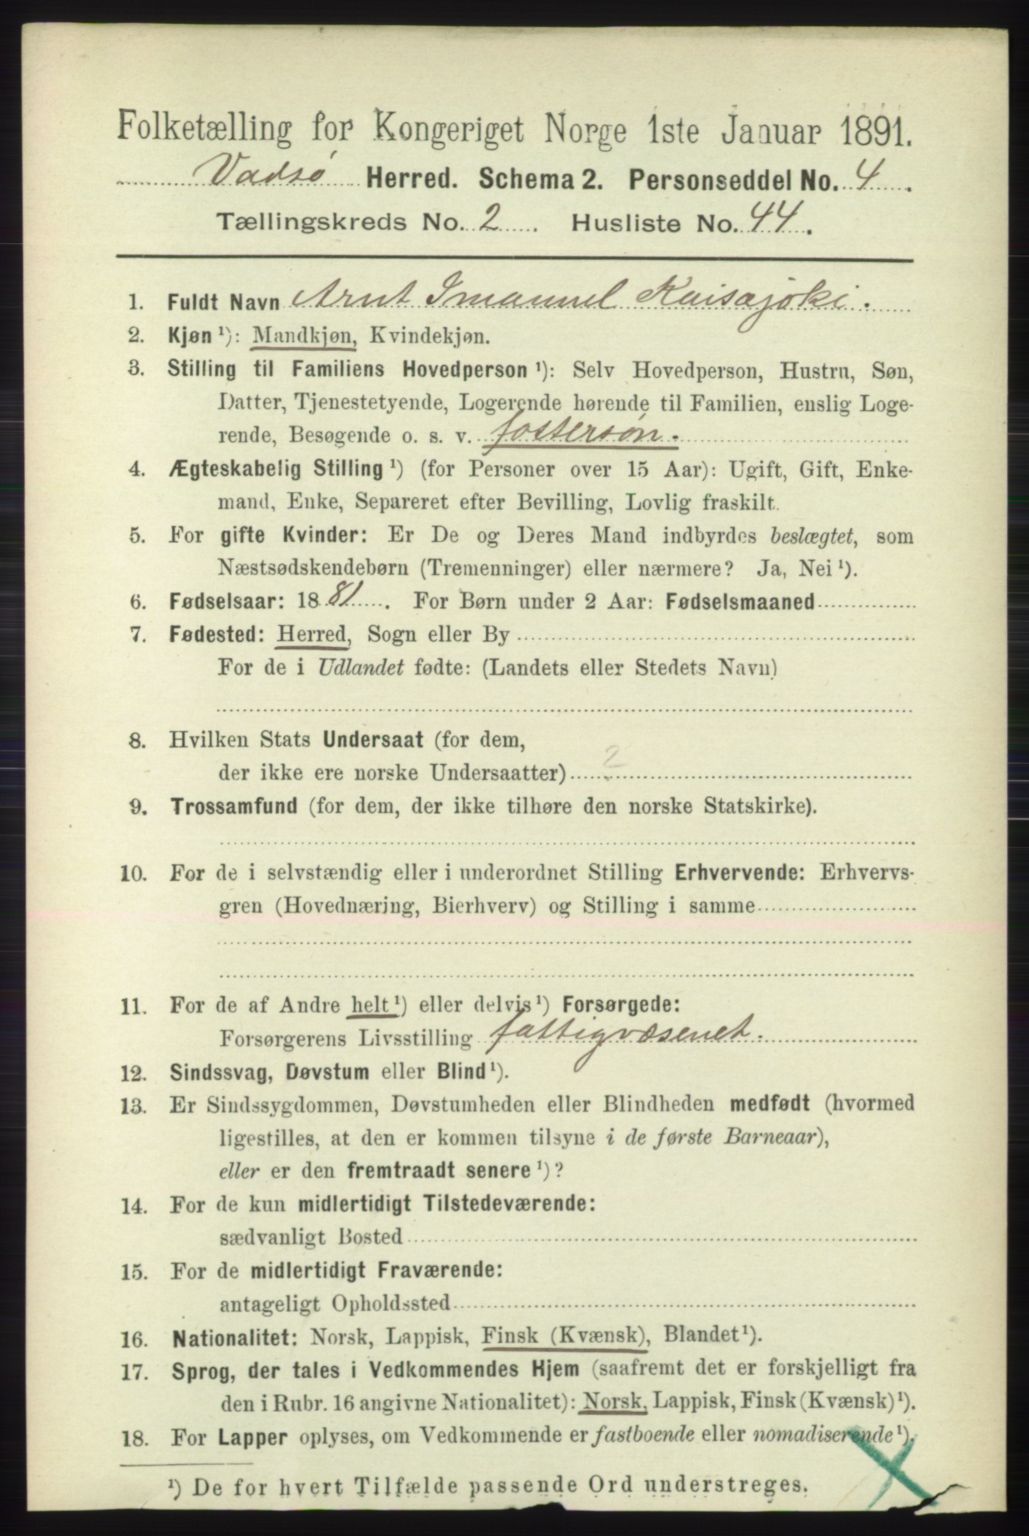 Folketælling for Kongeriget Norge 1ste Januar 1891.
Vadsø Herred. Schema 2. Personseddel No. 4.
Tællingskreds No. 2. Husliste No. 44.
1. Fuldt Navn Arnt Imanuel Kaisajoki.
2. Kjøn ¹): Mandkjøn, Kvindekjøn.
3. Stilling til Familiens Hovedperson ¹): Selv Hovedperson, Hustru, Søn,
Datter, Tjenestetyende, Logerende hørende til Familien, enslig Loge-
rende, Besøgende o. s. v. fostersøn.
4. Ægteskabelig Stilling ¹) (for Personer over 15 Aar): Ugift, Gift, Enke-
mand, Enke, Separeret efter Bevilling, Lovlig fraskilt.
5. For gifte Kvinder: Er De og Deres Mand indbyrdes beslægtet, som
Næstsødskendebørn (Tremenninger) eller nærmere? Ja, Nei ¹).
6. Fødselsaar: 1881. For Børn under 2 Aar: Fødselsmaaned
7. Fødested: Herred, Sogn eller By
For de i Udlandet fødte: (Landets eller Stedets Navn)
8. Hvilken Stats Undersaat (for dem,
der ikke ere norske Undersaatter) 2
9. Trossamfund (for dem, der ikke tilhøre den norske Statskirke).
10. For de i selvstændig eller i underordnet Stilling Erhvervende: Erhvervs-
gren (Hovednæring, Bierhverv) og Stilling i samme
11. For de af Andre helt ¹) eller delvis ¹) Forsørgede:
Forsørgerens Livsstilling fattigvæsenet.
12. Sindssvag, Døvstum eller Blind ¹).
13. Er Sindssygdommen, Døvstumheden eller Blindheden medfødt (hvormed
ligestilles, at den er kommen tilsyne i de første Barneaar),
eller er den fremtraadt senere ¹)?
14. For de kun midlertidigt Tilstedeværende:
sædvanligt Bosted
15. For de midlertidigt Fraværende:
antageligt Opholdssted
16. Nationalitet: Norsk, Lappisk, Finsk (Kvænsk), Blandet ¹).
17. Sprog, der tales i Vedkommendes Hjem (saafremt det er forskjelligt fra
den i Rubr. 16 angivne Nationalitet): Norsk, Lappisk, Finsk (Kvænsk) ¹).
18. For Lapper oplyses, om Vedkommende er fastboende eller nomadiserende ¹).
¹) De for hvert Tilfælde passende Ord understreges.